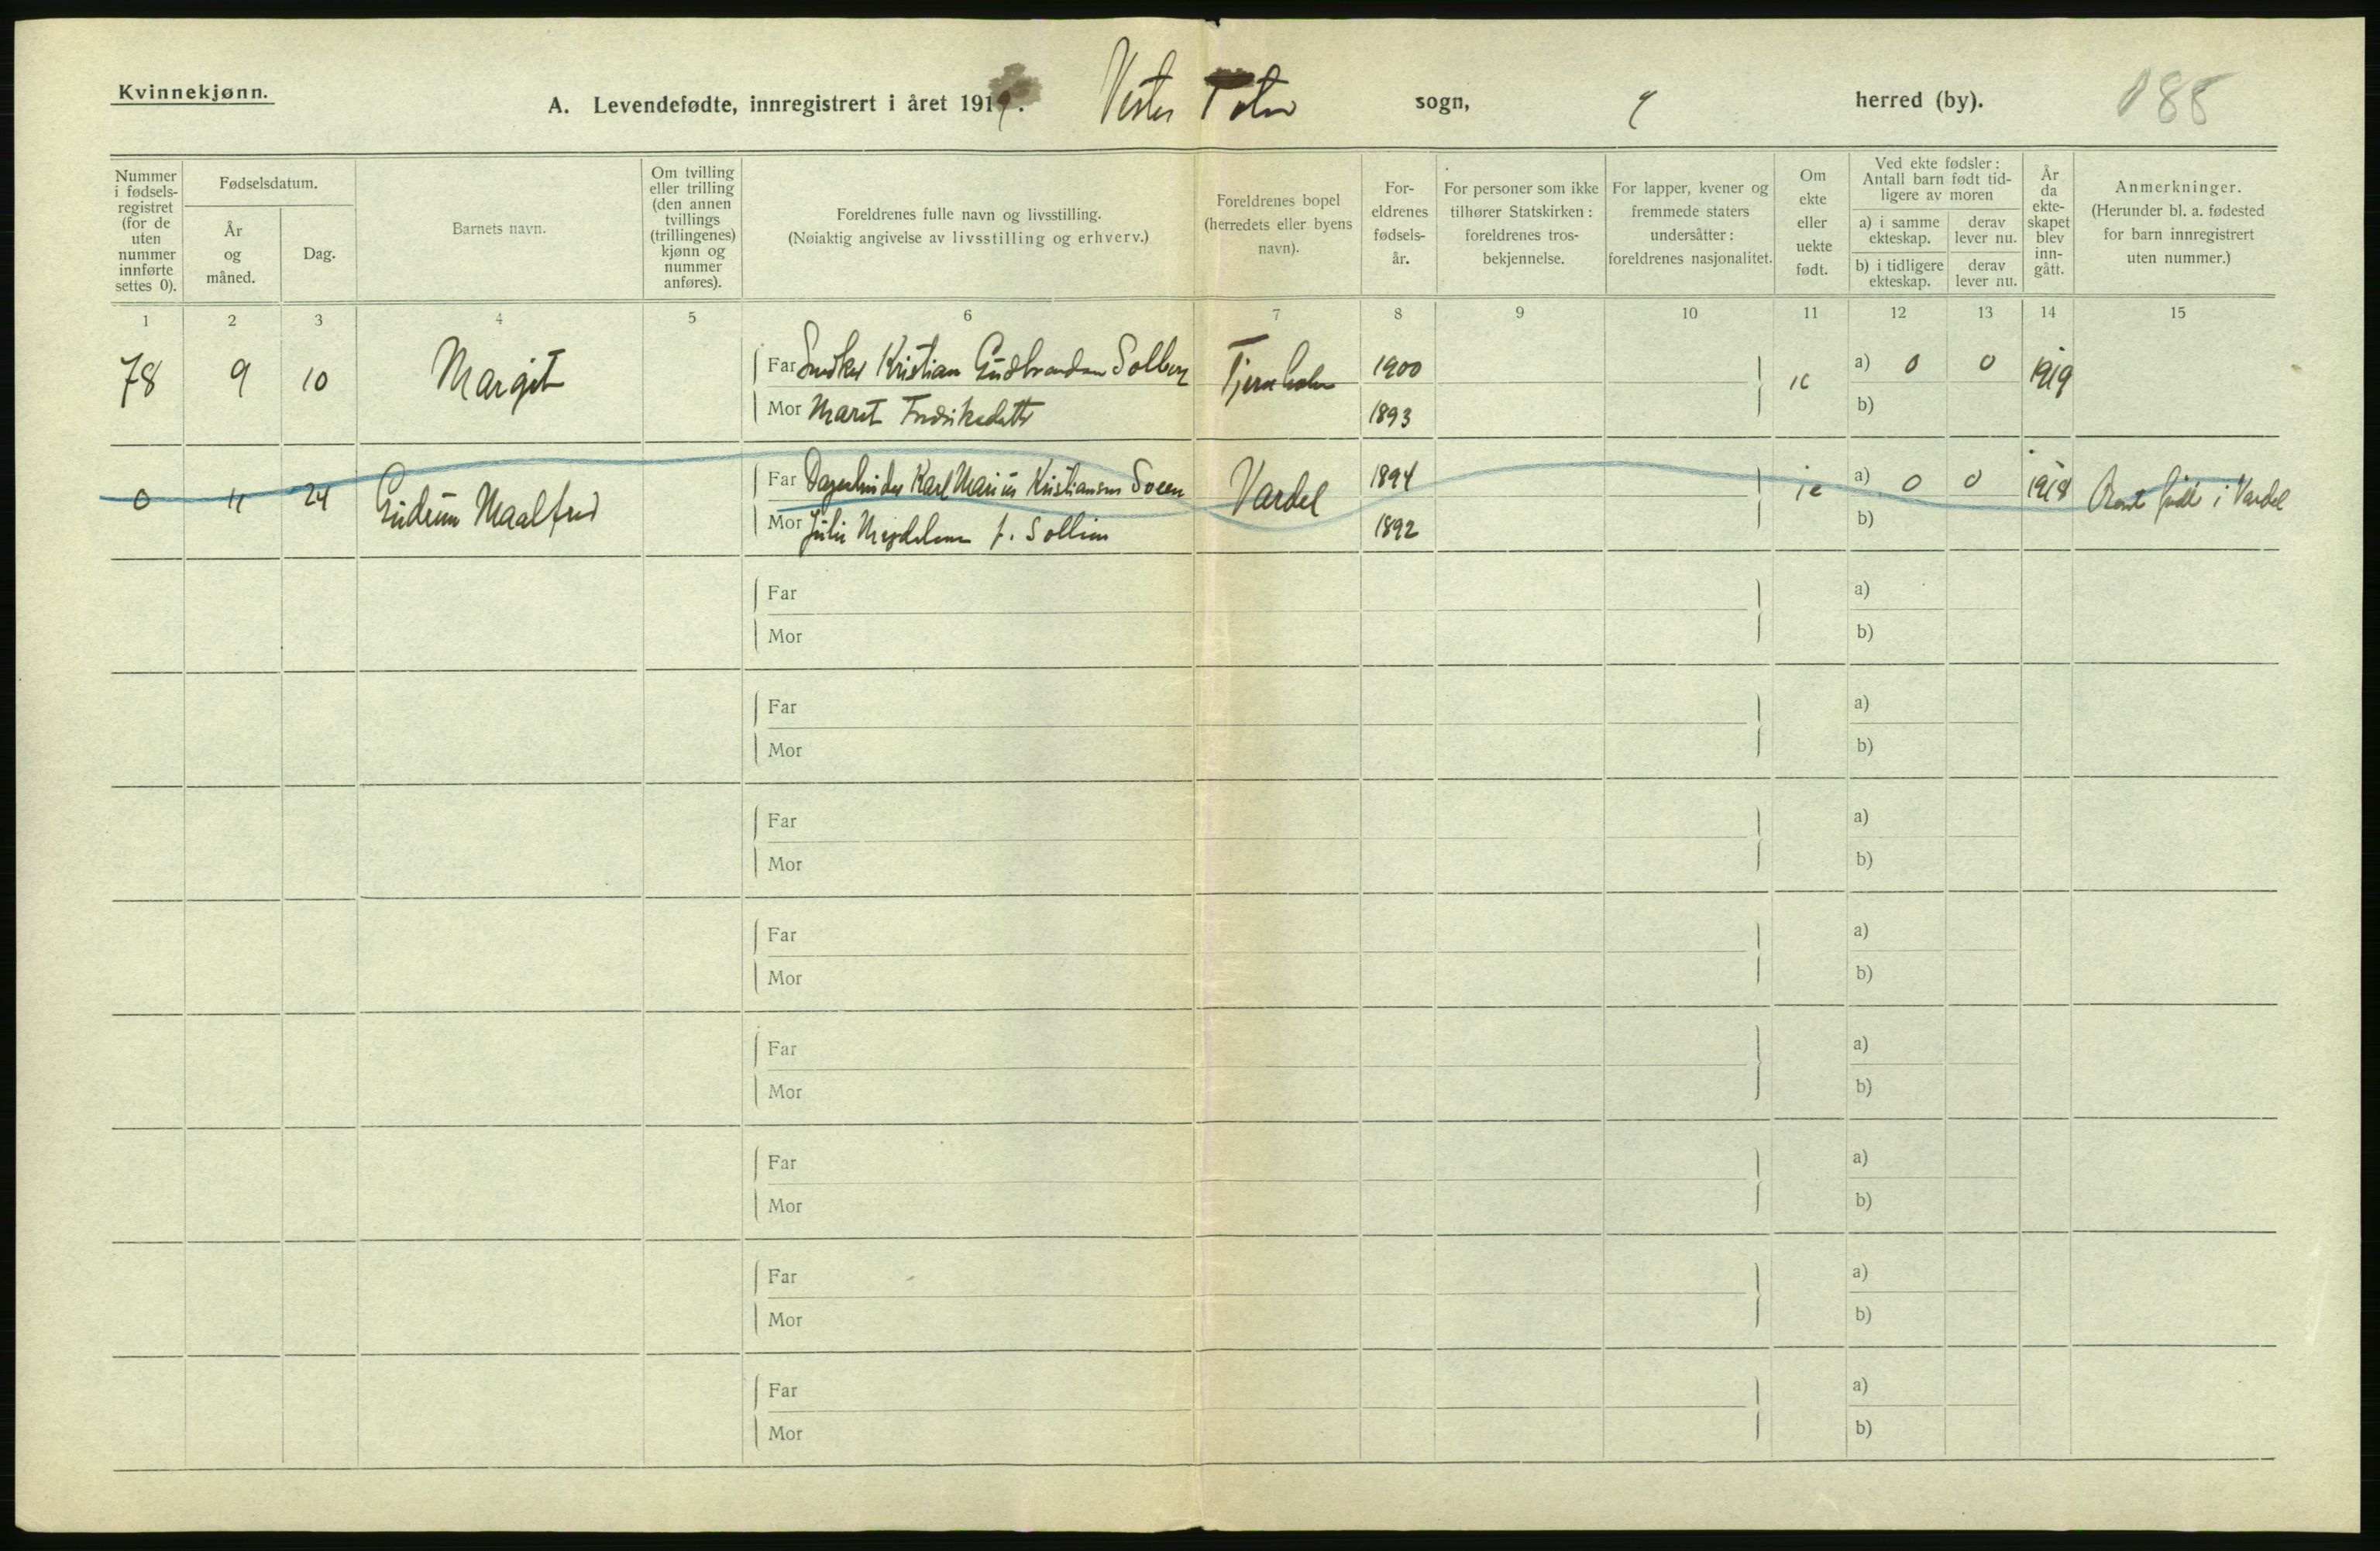 Kvinnekjønn.
A. Levendefødte, innregistrert i året 1919. Vestre Toten sogn, herred (by). 188
Nummer i fødsels-registret (for de uten nummer innførte settes 0).
Fødselsdatum.
År og måned.
Dag.
Barnets navn.
Om tvilling eller trilling (den annen tvillings (trillingenes) kjønn og nummer anføres).
Foreldrenes fulle navn og livsstilling.
(Nøiaktig angivelse av livsstilling og erhverv.)
Foreldrenes bopel (herredets eller byens navn).
For-eldrenes fødsels-år.
For personer som ikke tilhører Statskirken: foreldrenes tros-bekjennelse.
For lapper, kvener og fremmede staters undersåtter: foreldrenes nasjonalitet.
Om ekte eller uekte født.
Ved ekte fødsler: Antall barn født tid-ligere av moren
a) i samme ekteskap. derav lever nu.
b) i tidligere ekteskap. derav lever nu.
År da ekte-skapet blev inn-gått.
Anmerkninger.
(Herunder bl. a. fødested for barn innregistrert uten nummer.)
1 2 3 4 5 6 7 8 9 10 11 12 13 14 15
78 9 10 Margit Far Snedker Kristian Gudbrandsen Solberg 1900 a) 0 0 1919
Mor Marit Fredriksdatter 1893 b)
0 11 24 Gudrun Maalfrid Far Karl Marius Kristiansen Vardal 1894 a) 0 0 1918 født i Vardal
Mor Julie f. Sollien 1892 b)
Far a)
Mor b)
Far a)
Mor b)
Far a)
Mor b)
Far a)
Mor b)
Far a)
Mor b)
Far a)
Mor b)
Far a)
Mor b)
Far a)
Mor b)